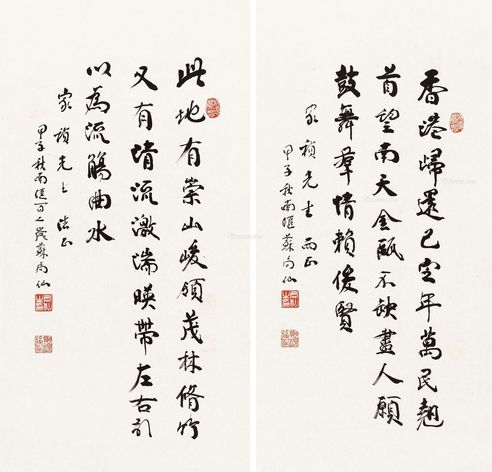 香港歸還已定年萬民翹
首望南天金甌不缺盡人願
鼓舞羣情賴俊賢
家禎先生 正
甲子秋南匯蘇局仙
此地有崇山峻領茂林脩竹
又有清流激湍暎帶左右引
以為流觴曲水
家禎先生 法正
甲子秋南匯百歲蘇局仙